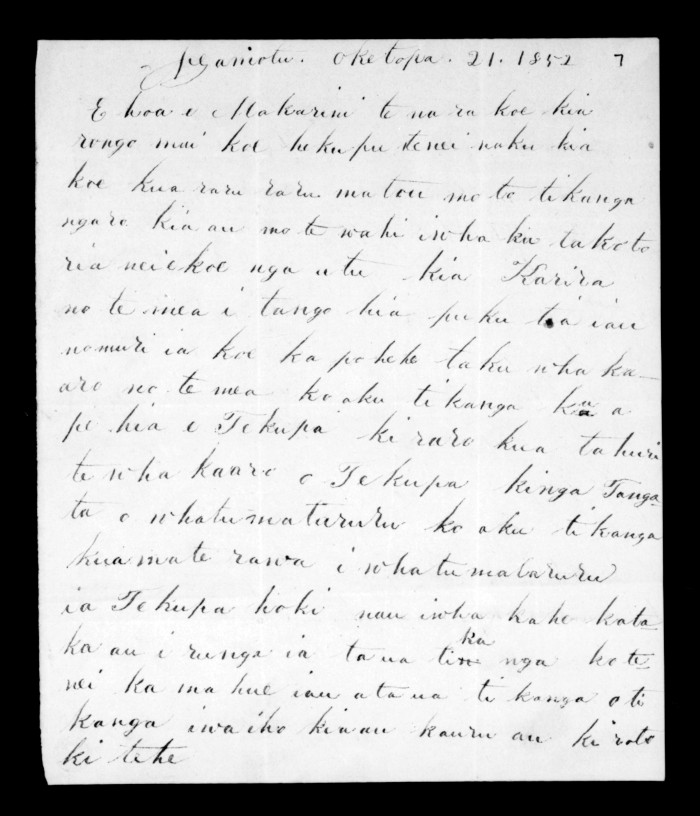 Ngamotu. Oketopa. 21. 1852 7
E hoa e Makarini te na ra koe kia
rongo mai koe hekupu tenei naku kia
koe kua raru raru matou mo to tikanga
ngaro kia au mo te wahi i wha ka takoto
ria nei e koe nga utu kia Karira
no te mea i tango hia puku tia iau
nomuri ia koe ka po hehe taku wha ka-
aro no te mea ko aku ti kanga kua a
po hia e Tekupa ki raro kua ta huri
te wha kaaro o Tekupa kinga Tanga-
ta o whatumatururu ko aku ti kanga
kua mate rawa i whatumatururu
ia Tekupa hoki nau i wha ka he kata-
ka au i runga ia ta ua ti ka nga ko te-
nei ka ma hue iau a ta ua ti kanga o ti
kanga i waiho kia au kauru au ki roto
ki tehe